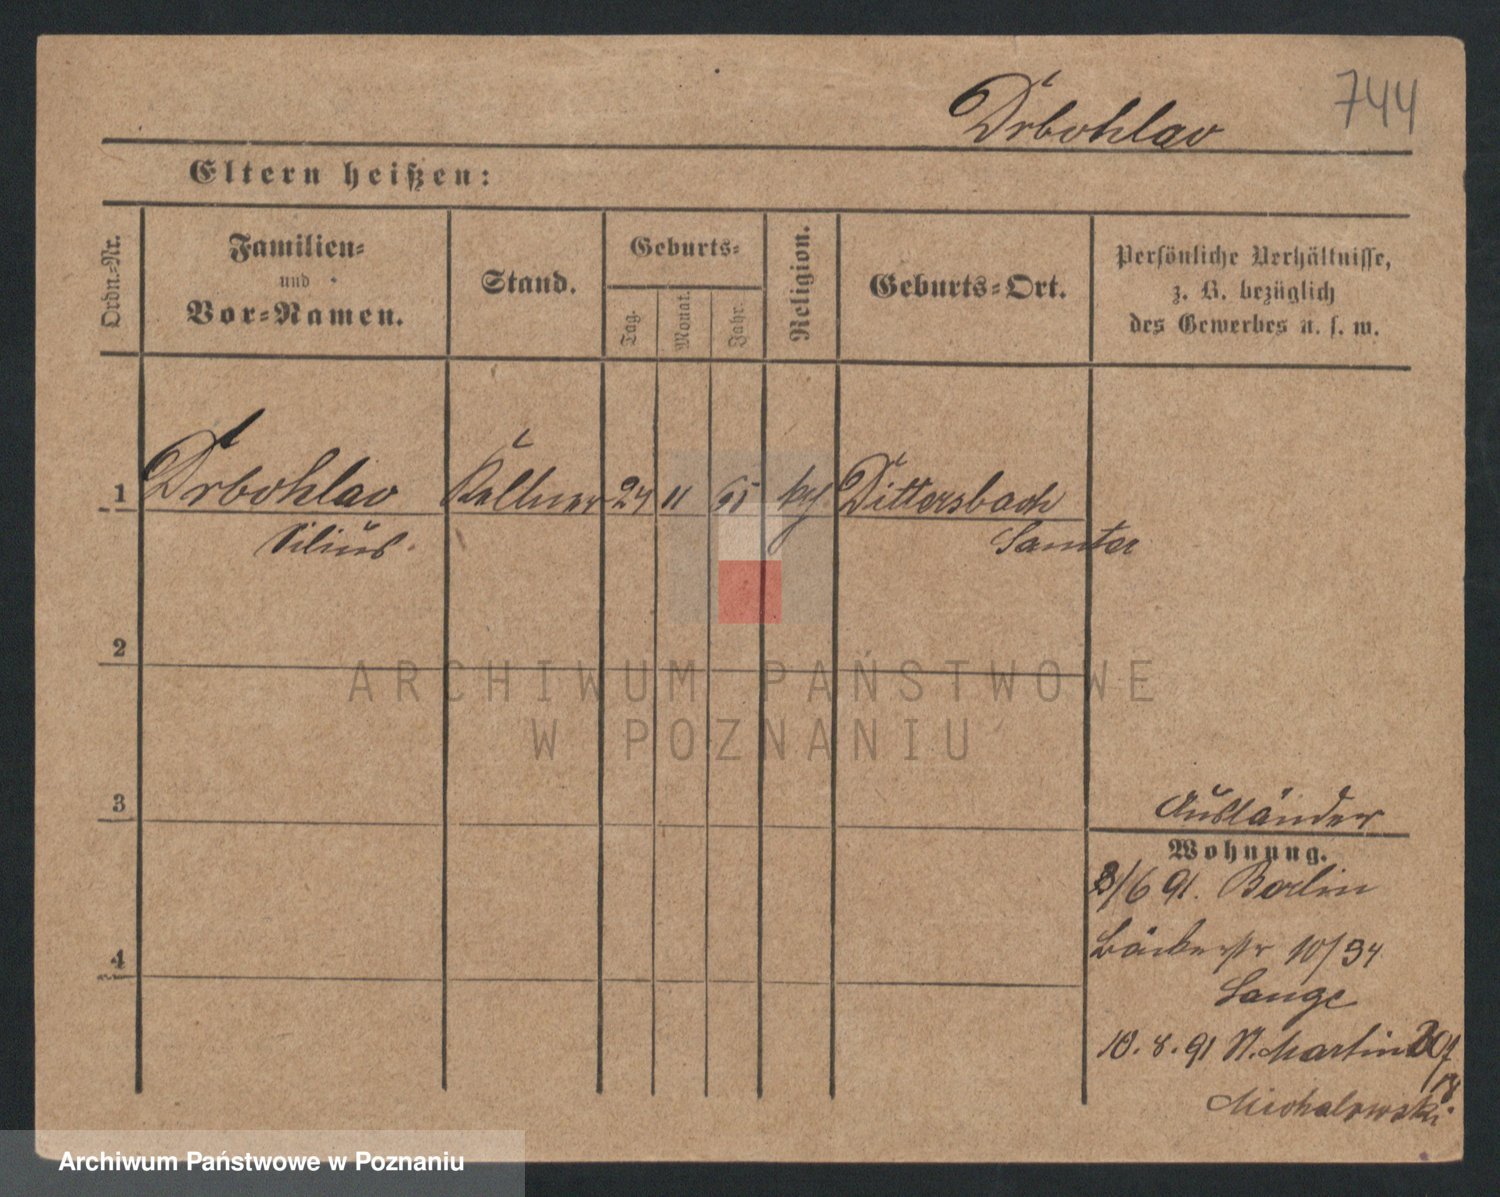 744
Drbohlav
Eltern heißen:
Ordn.-Nr.
Familien-
und
Vor-Namen.
Stand.
Geburts-
Tag.
Monat.
Jahr.
Religion.
Geburts-Ort.
Persönliche Verhältnisse,
z. B. bezüglich
des Gewerbes u. s. w.
1 Drbohlav Kellner 24 11 65 Dittersbach
Samter
2
ARCHIWUM PAŃSTWOWE
W POZNANIU
3
Ausländer
Wohnung.
3/6 91. Berlin
Bäckerstr 10/94
Lange
4
10.8.91 St. Martin
Michalowski
Archiwum Państwowe w Poznaniu